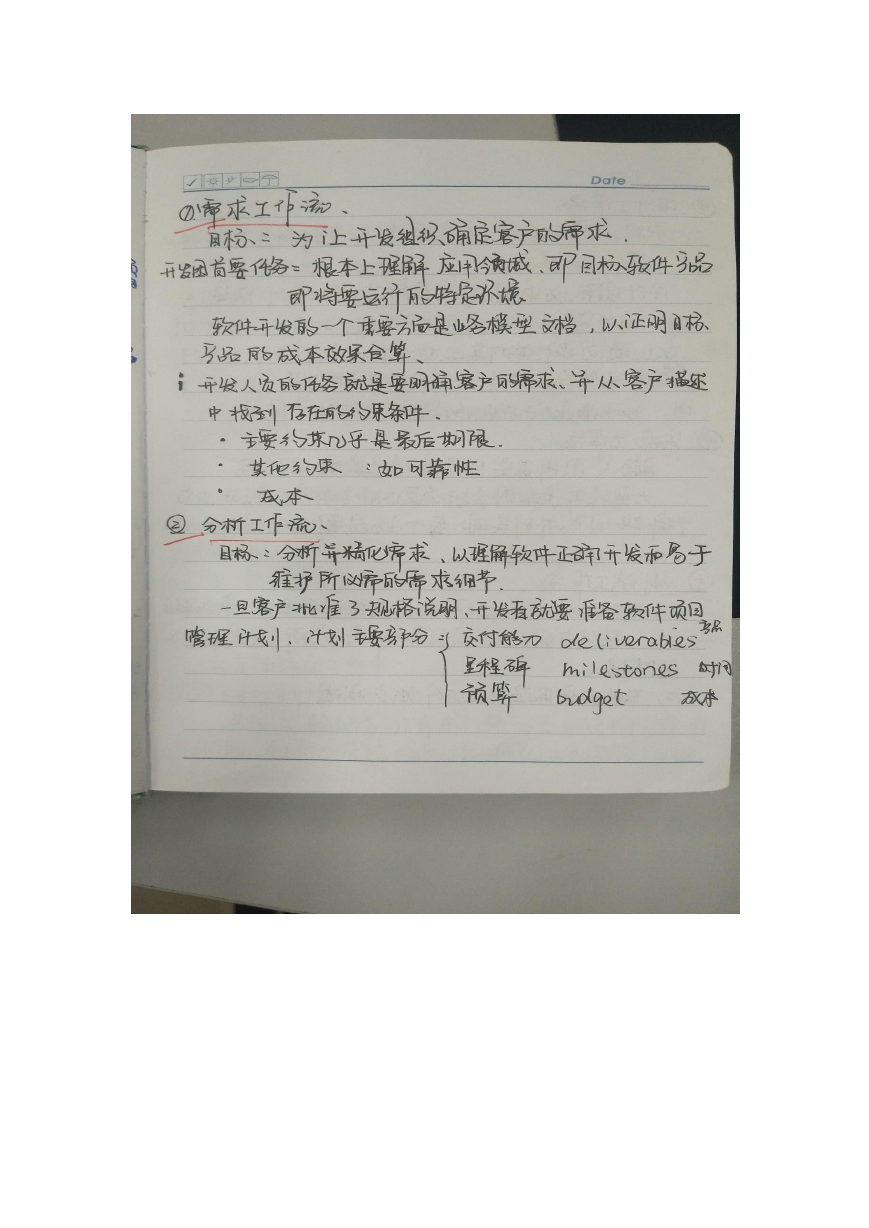 Date
①需求工作流、
目标：为让开发组织确定客户的需求.
开发团首要任务：根本上理解 应用领域、即目标软件产品
即将要运行的特定环境
软件开发的一个重要方面是业务模型文档，以证明目标
产品的成本效果合算、
i 开发人员的任务就是要明确客户的需求、并从客户描述
中找到 存在的约束条件.
· 主要约束几乎是最后期限.
· 其他约束 ：如可靠性
· 成本
② 分析工作流、
目标：分析并精化需求、以理解软件正确开发和易于
维护所必需的需求细节.
一旦客户批准了规格说明、开发者就要准备软件项目
管理计划. 计划主要部分： 交付能力 deliverables 产品
里程碑 milestones 时间
预算 budget 成本